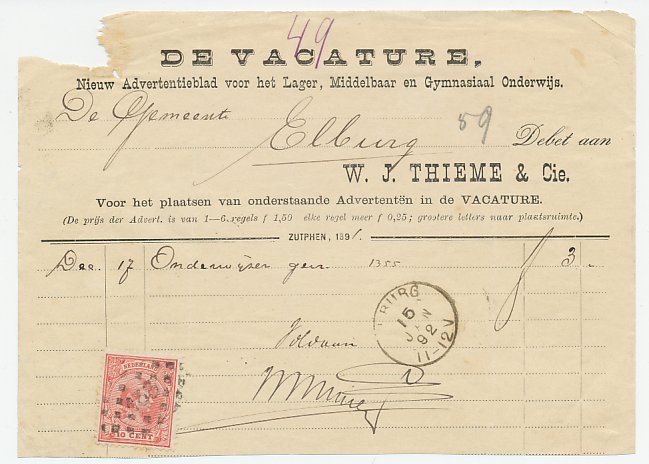 49
DE VACATURE,
Nieuw Advertentieblad voor het Lager, Middelbaar en Gymnasiaal Onderwijs.
De Gemeente
Elburg 59 Debet aan
W. J. THIEME & Cie.
Voor het plaatsen van onderstaande Advertentën in de VACATURE.
(De prijs der Advert. is van 1—6 regels f 1,50 elke regel meer f 0,25; grootere letters naar plaatsruimte.)
ZUTPHEN, 1891.
Dec. 17 Onderwijzer gem 1355 f 3 -
BURG
15
JAN
92
11-12V
Voldaan
NEDERLAND
10 CENT